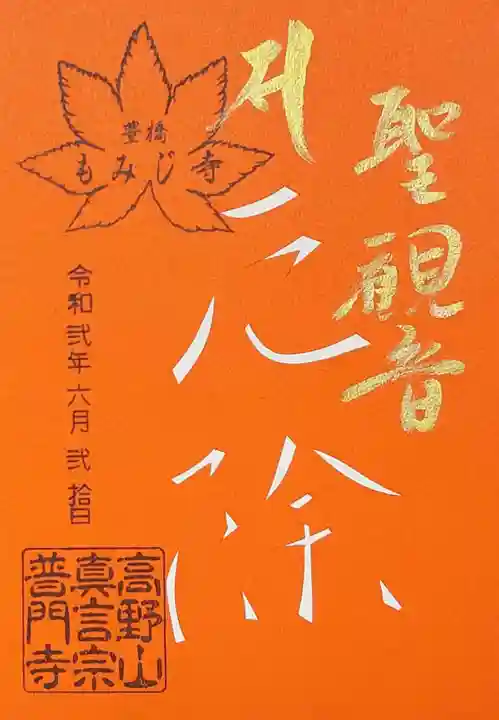 聖観音
厄除
豊橋
もみじ寺
令和弐年六月弐拾日
高野山
真言宗
普門寺